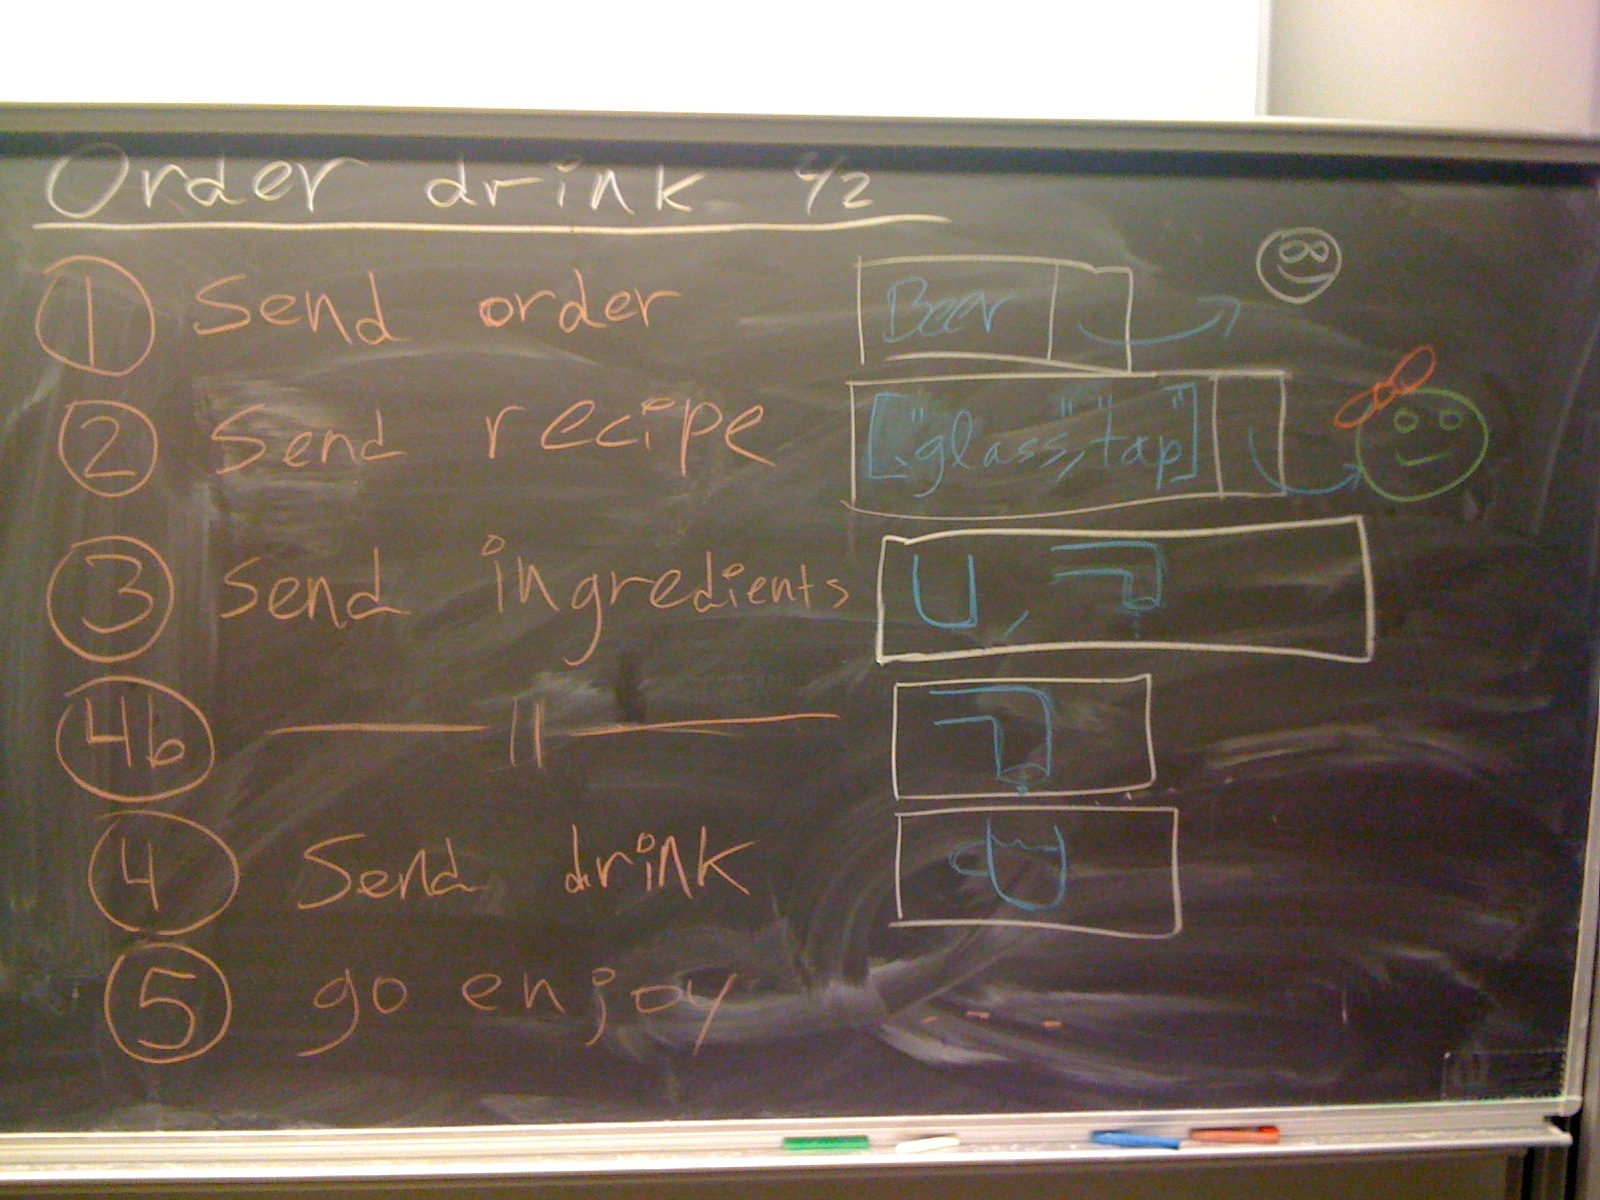 Order drink 1/2
1 Send order Beer
2 Send recipe ["glass","tap"]
3 Send ingredients
4b —— || ——
4 Send drink
5 go enjoy ...